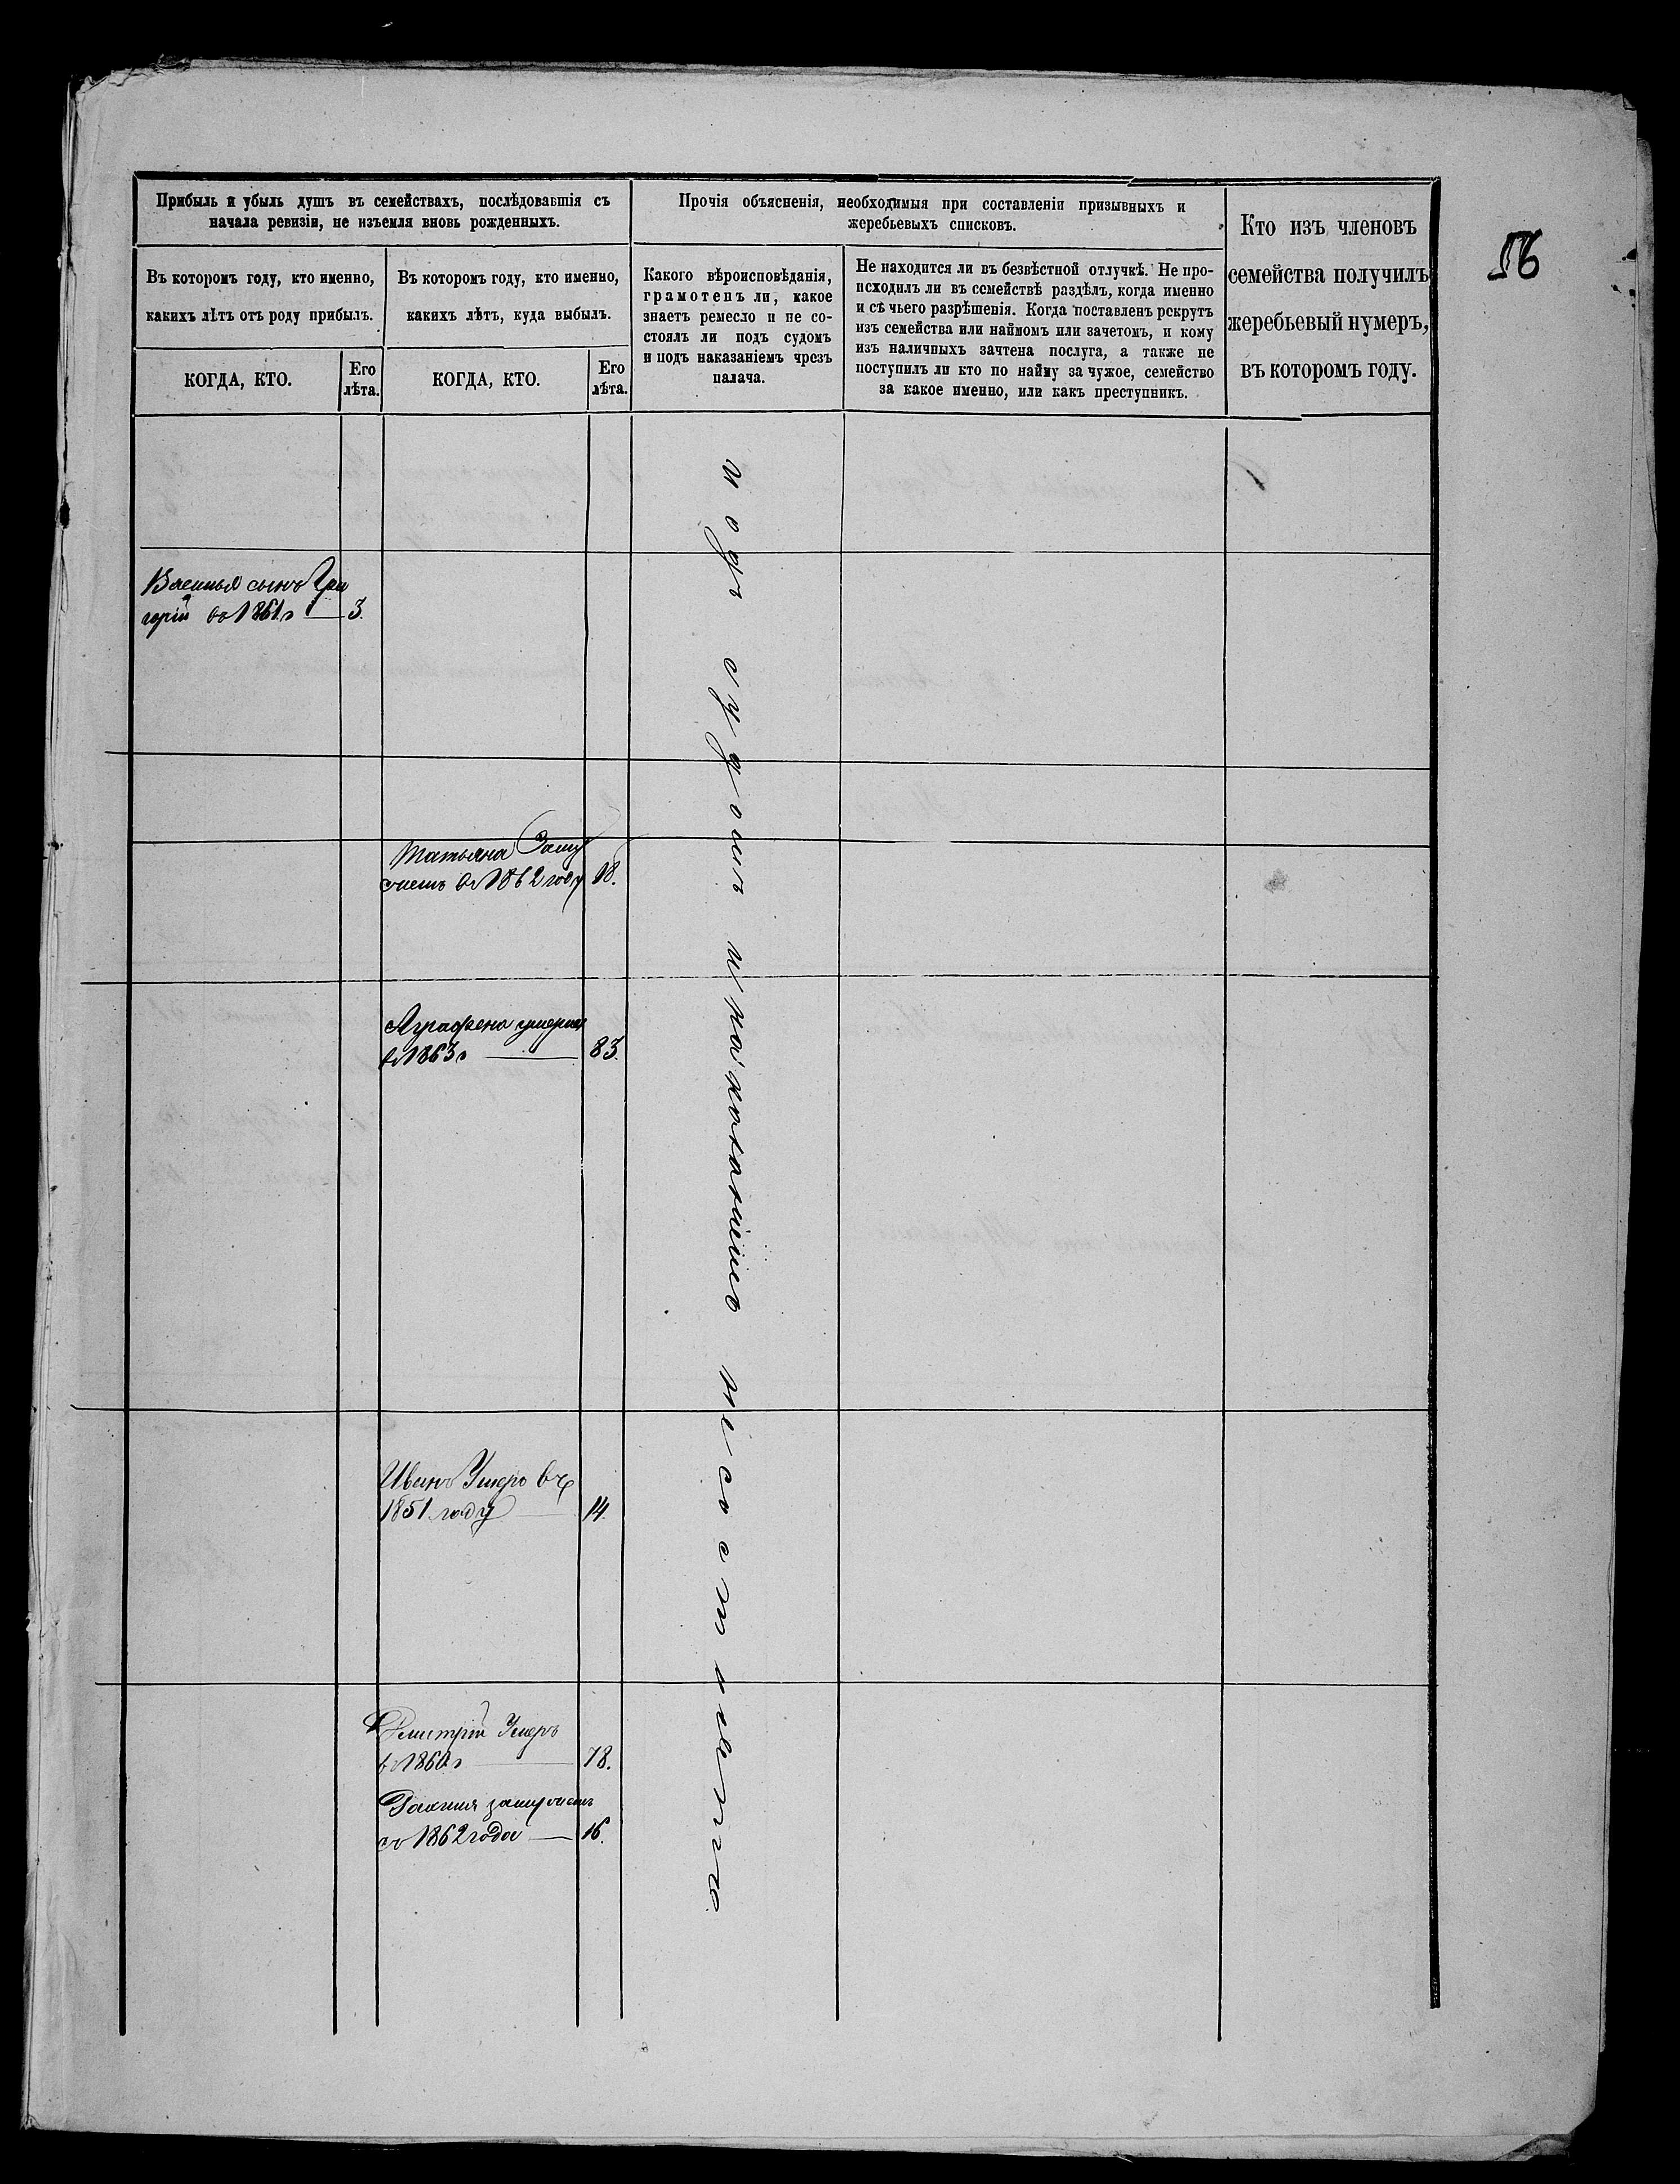 Прибыль и убыль душъ въ семействахъ, послѣдовавшія съ
начала ревизіи, не изъемля вновь рожденныхъ.
Прочія объясненія, необходимыя при составленіи призывныхъ и
жеребьевыхъ списковъ.
Кто изъ членовъ
семейства получилъ
жеребьевый нумеръ,
въ которомъ году.
56
Въ которомъ году, кто именно,
какихъ лѣтъ отъ роду прибылъ.
Въ которомъ году, кто именно,
какихъ лѣтъ, куда выбылъ.
Какого вѣроисповѣданія,
грамотенъ ли, какое
знаетъ ремесло и не со-
стоялъ ли подъ судомъ
и подъ наказаніемъ чрезъ
палача.
Не находится ли въ безвѣстной отлучкѣ. Не про-
исходилъ ли въ семействѣ раздѣлъ, когда именно
и съ чьего разрѣшенія. Когда поставленъ рекрутъ
изъ семейства или наймомъ или зачетомъ, и кому
изъ наличныхъ зачтена послуга, а также не
поступилъ ли кто по найму за чужое, семейство
за какое именно, или какъ преступникъ.
КОГДА, КТО.
Его
лѣта.
КОГДА, КТО.
Его
лѣта.
сынъ Гри
горій въ 1861 г 3.
Татьяна Заму
жемъ въ 1862 году 18.
Аграфена умерла
въ 1863 г 83.
Иванъ Умеръ въ
1851 году 14.
Дмитрій Умеръ
въ 1860 г 78.
замужемъ
съ 1862 года 16.
подъ судомъ и наказаніемъ не состояли